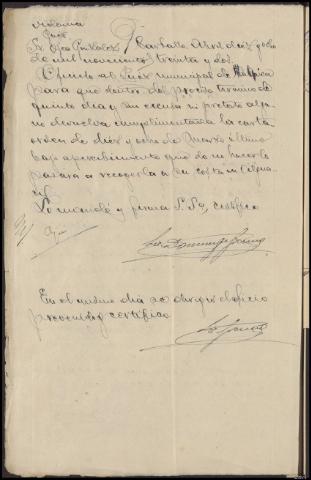 Juez
Carballo Abril diez y ocho
de mil novecientos treinta y dos.
Oficiese al Juez municipal de Malpica
para que dentro del preciso termino de
quinto dia y sin escusa ni pretesto algu-
no devuelva cumplimentada la carta
orden de diez y ocho de Marzo último
bajo apercibimiento que de no hacerlo
pasará a recogerla a su costa un Alguacil.
Lo mandó y firma S. Sª, certifico
En el mismo dia se dirigió el oficio
prevenido, certifico